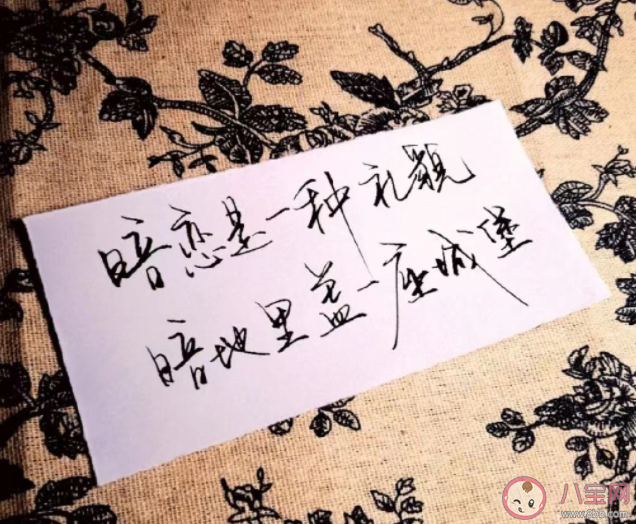 暗恋是一种礼貌
暗地里盖一座城堡
八宝网